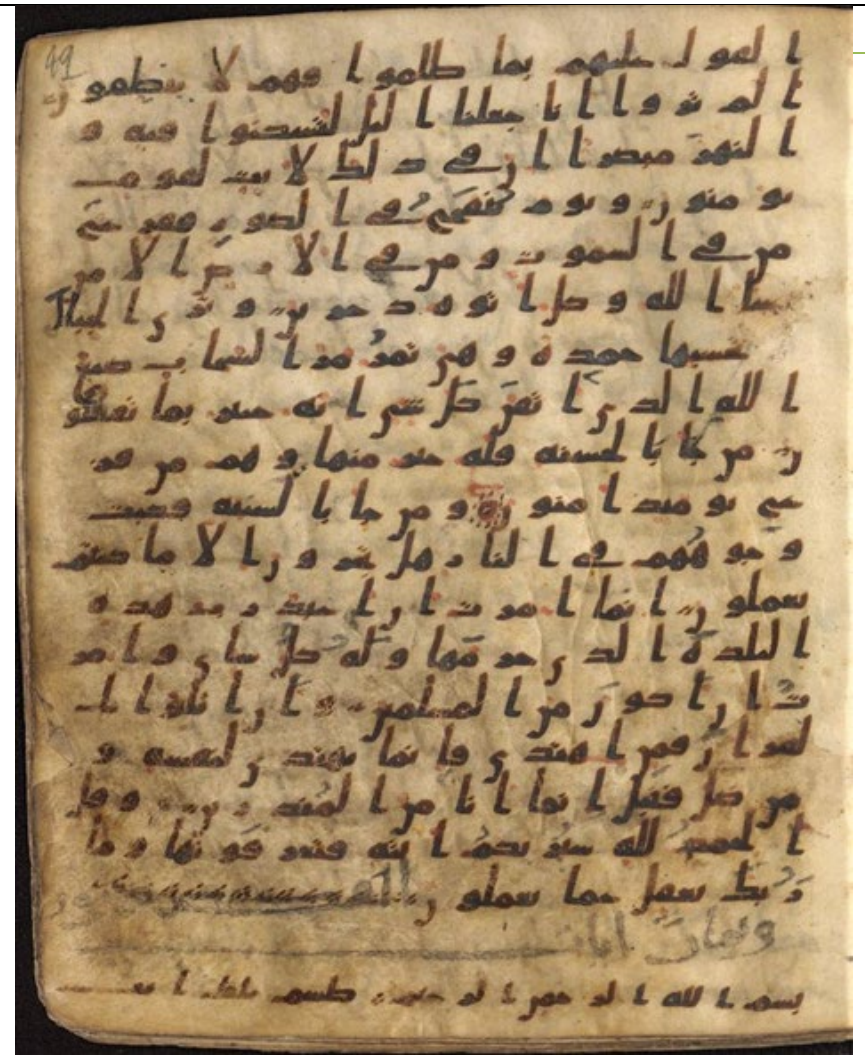 القول عليهم بما ظلموا فهم لا ينطقون
الم يروا انا جعلنا اليل لتسكنوا فيه و
النهر مبصرا ان في ذلك لايت لقوم
يومنون ويوم ينفخ في الصور ففزع
من في السموت ومن في الارض الا من
شا الله وكل اتوه دخرين وترى الجبا
تحسبها جمدة وهي تمر مر السحاب صنع
الله الذي اتقن كل شي انه خبير بما تفعلو
ن من جا بالحسنه فله خير منها وهم من فز
ع يومئذ امنون ومن جا بالسيئه فكبت
وجوههم في النار هل تجزون الا ما كنتم
تعملون انما امرت ان اعبد رب هذه
البلدة الذي حرمها وله كل شاي وامر
ت ان اكون من المسلمين وان اتلوا ا
لقران فمن اهتدى فانما يهتدي لنفسه و
من ضل فقل انما انا من المنذرين وقل
الحمد لله سيريكم ايته فتعرفونها وما
ربك بغفل عما تعملون
وثمان ايات
بسم الله الرحمن الرحيم طسم تلك ا